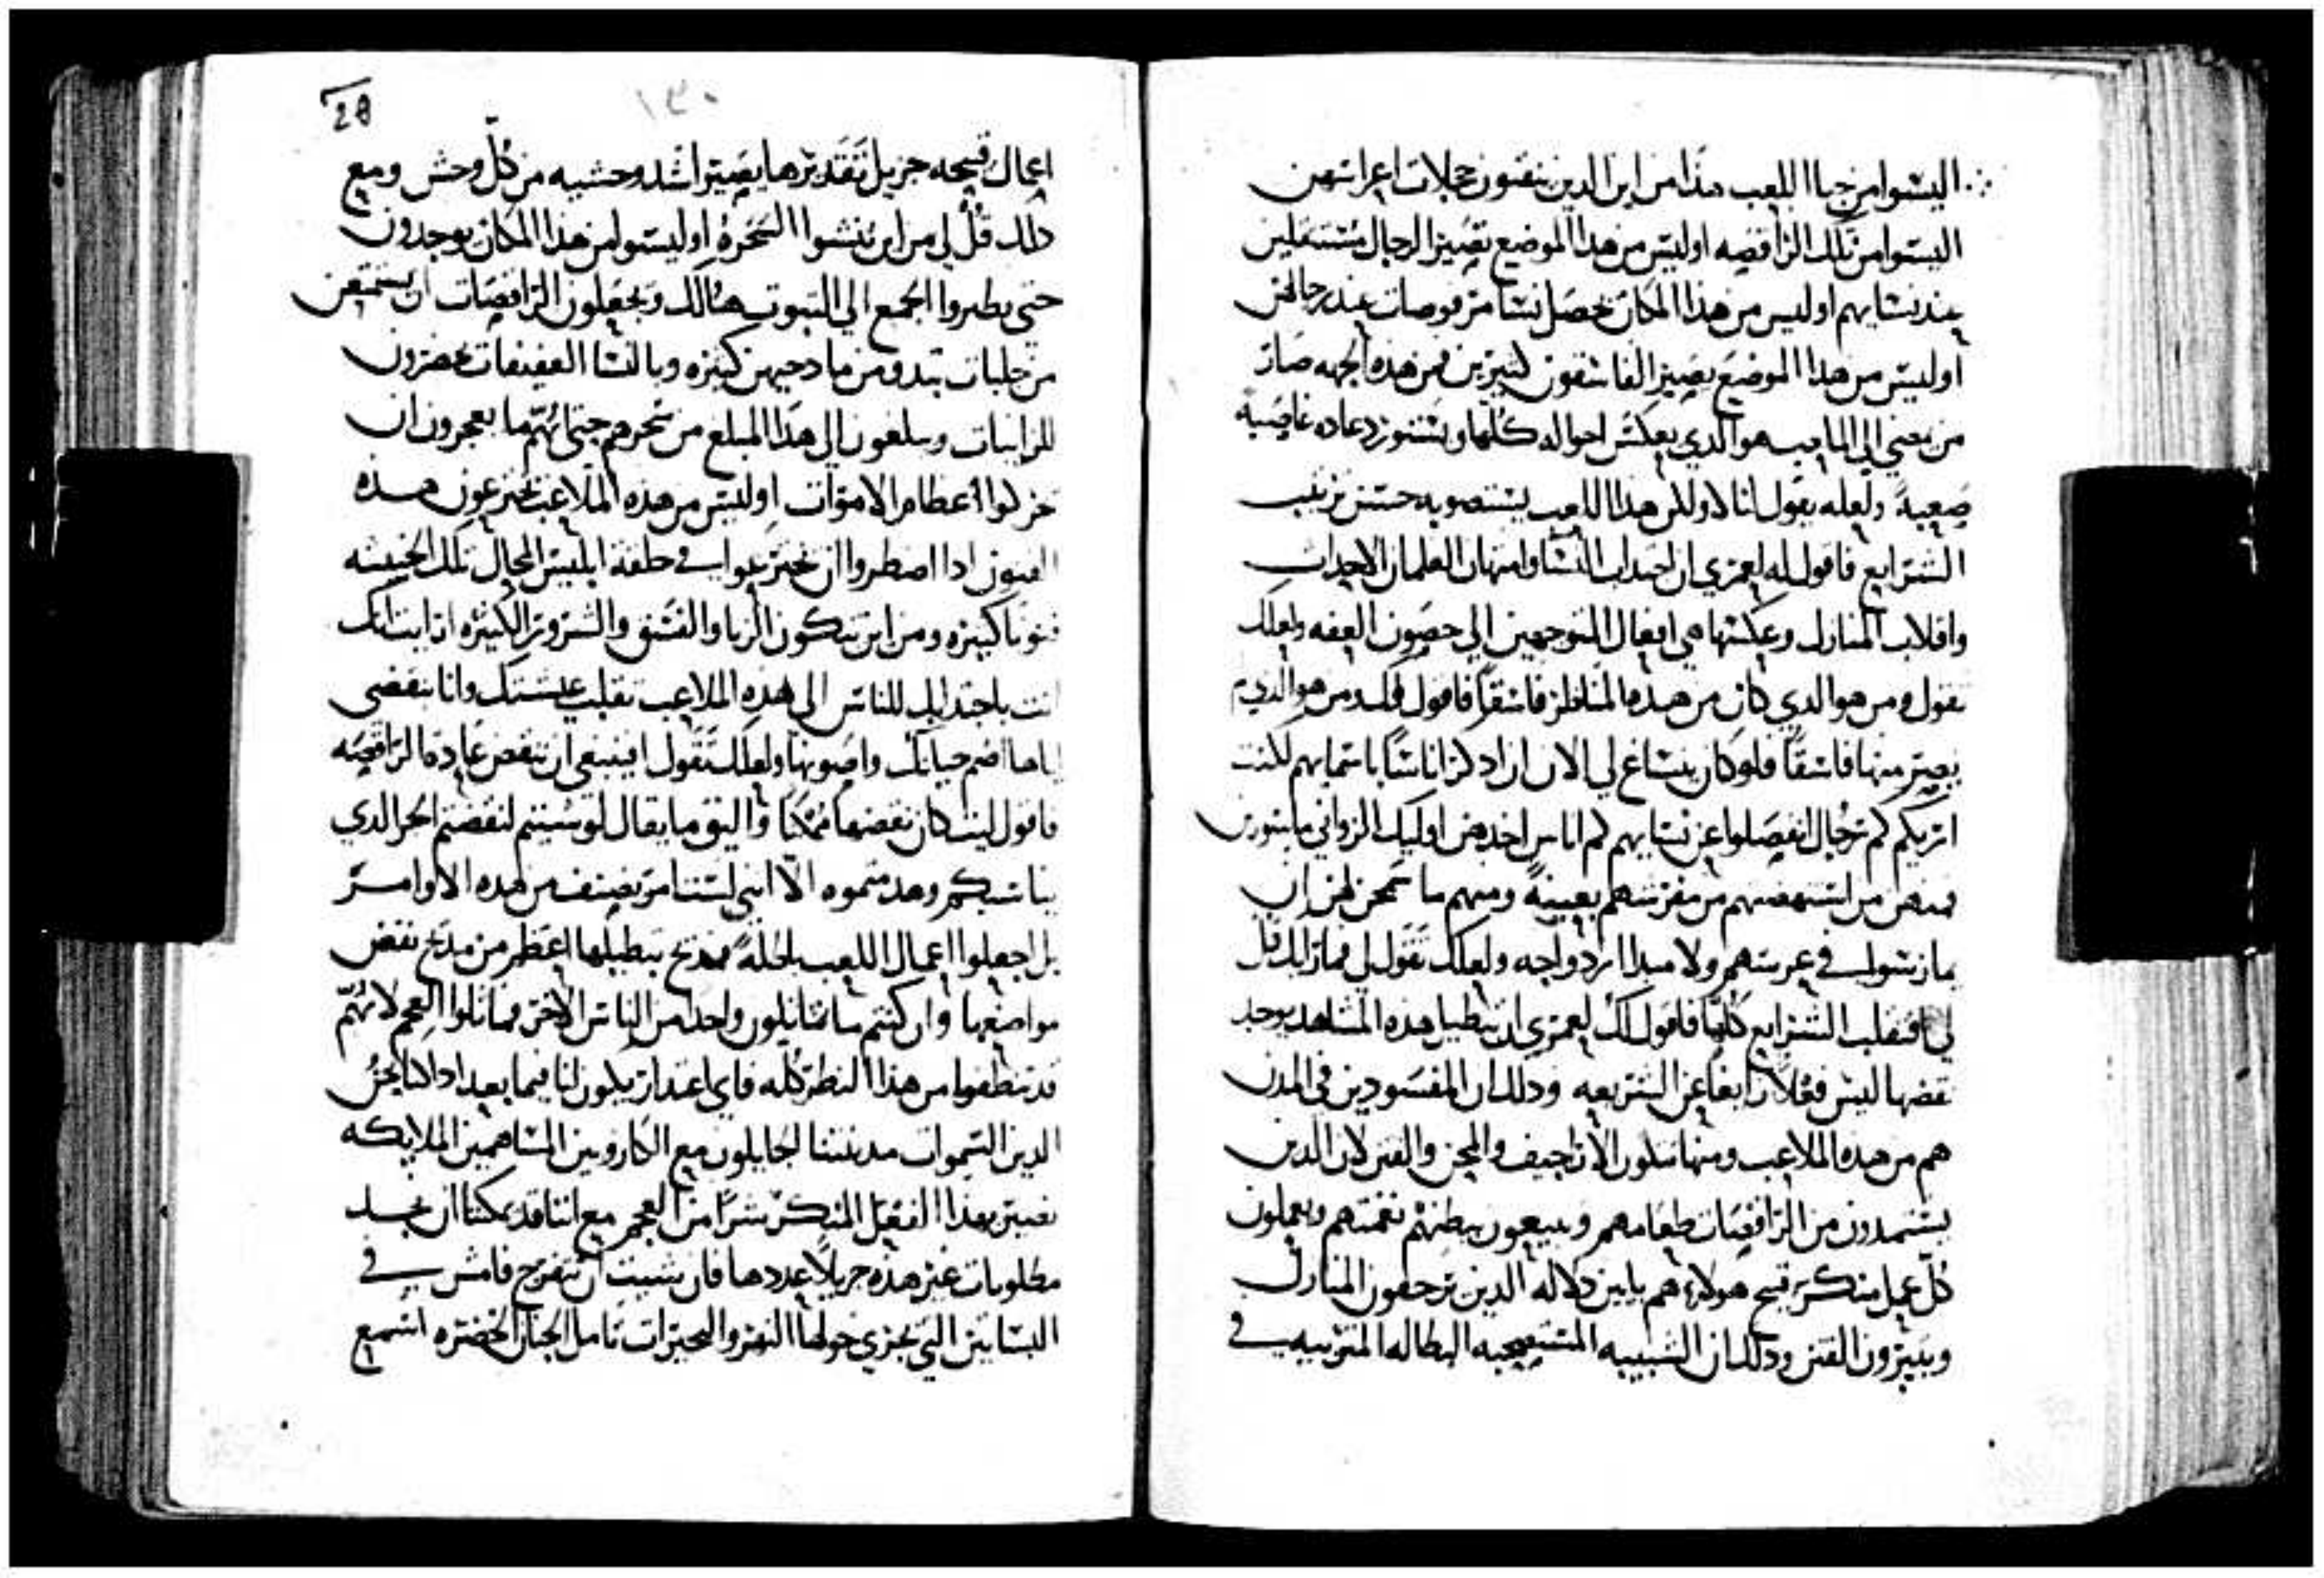 اليسوا من حبا اللعب هذا من اين الدين ينقبون حجلات اعراسهن
اليسوا من تلك الراقصه اوليس من هذا الموضع تصير الرجال مستثقلين
عند نسايهم اوليس من هذا المكان تحصل نسا مرفوضات عند رجالهن
اوليس من هذا الموضع يصير الفاسقون كثيرين فمن هذه الجهه صار
من يمضي الى الملعب هو الدي يعكس احواله كلها ويستورد عاده غاصبه
صعبه ولعله يقول انا لا ولكن هذا اللعب يستصوبه حسن ترتيب
الشرايع فاقول له لعمري ان اجتداب النسا وامتهان الغلمان الاحداث
واقلاب المنازل وعكسها هي افعال المتوجهين الى حصون العفه ولعلك
تقول ومن هو الدي كان من هذه المناظر فاسقا فاقول لك ومن هو الدي لم
يصير منها فاسقا فلو كان ينساغ لي الان ان ادكر اناسا باسمايهم لكنت
اريكم كم رجال انفصلوا عن نسايهم كم اناس اخدهم اوليك الزواني ماسورين
فمنهم من استنهضنهم من مفرشهم بعينه ومنهم ما سمحن لهم ان
يمارسوا في عرسهم ولا مبدا ازدواجه ولعلك تقول لي فمادا لك قل
لي افنقلب الشرايع كلها فاقول لك لعمري ان تبطيل هذه المشاهد يوجد
نقضها ليس فعلا زايغا عن الشريعه ودلك ان المفسودين في المدن
هم من هذه الملاعب ومنها تتكون الاراجيف والمحن والفتن لان الدين
يستمدون من الراقصات طعامهم ويبيعون ببطنهم نغمتهم ويعملون
كل عمل منكر قبيح هولاء هم باين دلاله الدين يرجفون المنازل
ويثيرون الفتن ودلك ان الشبيبه المستصحبه البطاله المتربيه في
28
١٣٠
اعمال قبيحه جزيل تقديرها يصير اشد وحشيه من كل وحش ومع
دلك قل لي من اين ينشوا السحره اوليسوا من هذا المكان يوجدون
حتى يطيروا الجمع الى التبوت هنالك ويجعلون الراقصات ان يستمتعن
من جلبات تبدو من مادحيهن كثيره وبالنسا العفيفات يحضرون
للزانيات ويبلغون الى هذا المبلغ من سحرهم حتى انهم ما يعجزون ان
يحركوا اعظام الاموات اوليس من هذه الملاعب يخترعون هذه
الفنون ادا اضطروا ان يخترعوا في حلقة ابليس المحال تلك الخبيثه
فنونا كثيره ومن اين تتكون الزنا والفسق والشرور الكثيره ارايت انك
انت باجتدابك للناس الى هذه الملاعب تقلب عيشتك وانا بنقضي
اياها اضم حياتك واصونها ولعلك تقول افينبغي ان ننقض عادة الراقصه
فاقول ليت كان نقضها ممكنا واليق ما يقال لو شيتم لنقضتم الحر الدي
يناسبكم وهدمتموه الا انني لست امر بصنف من هذه الاوامر
بل اجعلوا اعمال اللعب باطله فمدح تبطيلها اعظم من مدح نقض
مواضعها وان كنتم ما تماثلون واحدا من الناس الاخر فماثلوا العجم لانهم
قد تنظفوا من هذا النظر كله فاي اعتدار يكون لنا فيما بعد ادا كنا نحن
الدين السموات مدينتنا الجايلون مع الكاروبين المساهمين الملايكه
نصير بهذا الفعل المنكر شرا من العجم مع اننا قد يمكننا ان نجد
مطلوبات غير هذه جزيلا عددها فان شيت ان تتفرج فامش في
البساتين التي يجري حولها النهر والبحيرات تامل الجنان الخضره اسمع